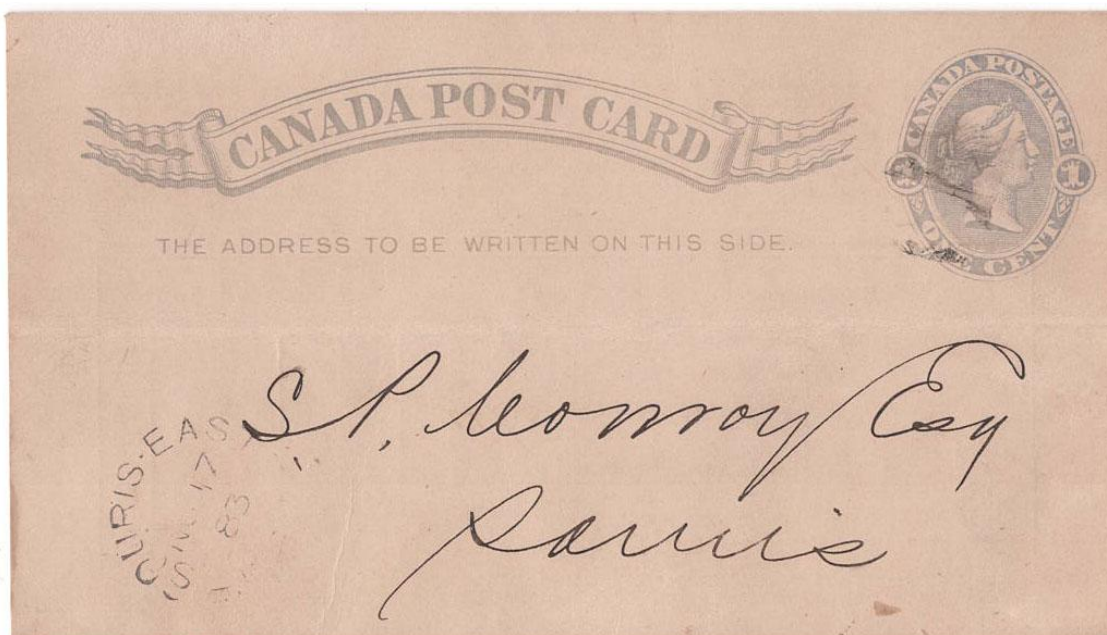 CANADA POST CARD
CANADA POSTAGE
1 1
ONE CENT
THE ADDRESS TO BE WRITTEN ON THIS SIDE.
S P. Conroy Esq
Souris
SOURIS-EAST
17
83